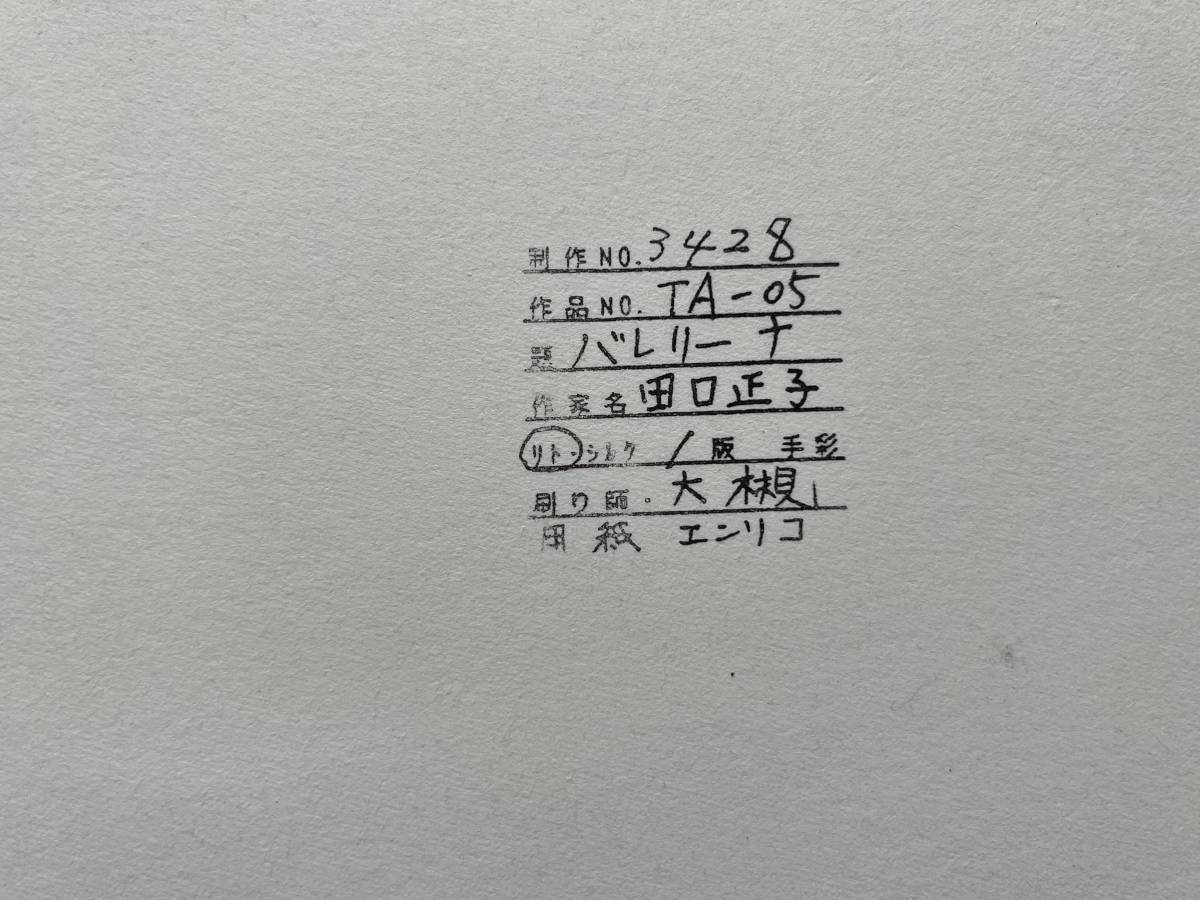 制作NO.3428
作品NO.TA-05
題 バレリーナ
作家名 田口正子
リト・シルク / 版 手彩
刷り師・大槻
用紙 エンリコ